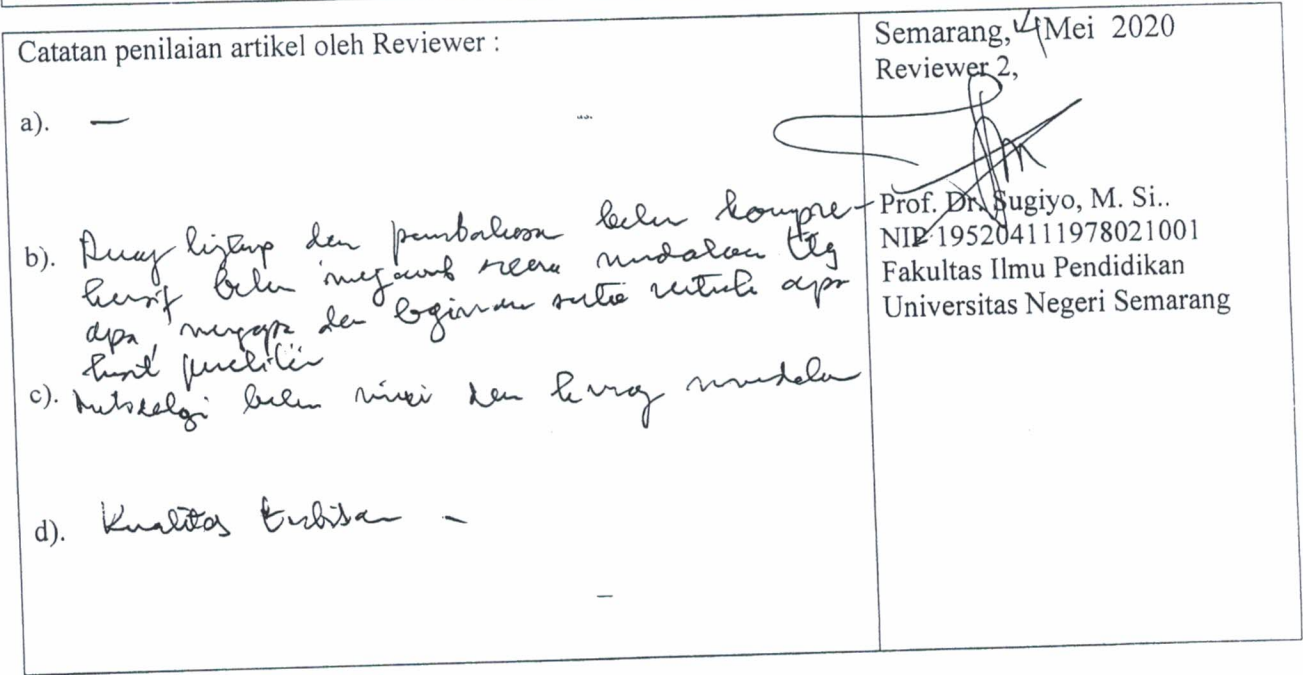 Catatan penilaian artikel oleh Reviewer :
a). —
b). Ruang lingkup dan pembahasan belum kompre-
hensif belum menjawab secara mendalam ttg
apa, mengapa dan bagaimana serta untuk apa
hasil penelitian
c). Metodelogi belum rinci dan kurang mendalam
d). Kualitas terbitan -
–
Semarang, 4 Mei 2020
Reviewer 2,
Prof. Dr. Sugiyo, M. Si..
NIP 195204111978021001
Fakultas Ilmu Pendidikan
Universitas Negeri Semarang